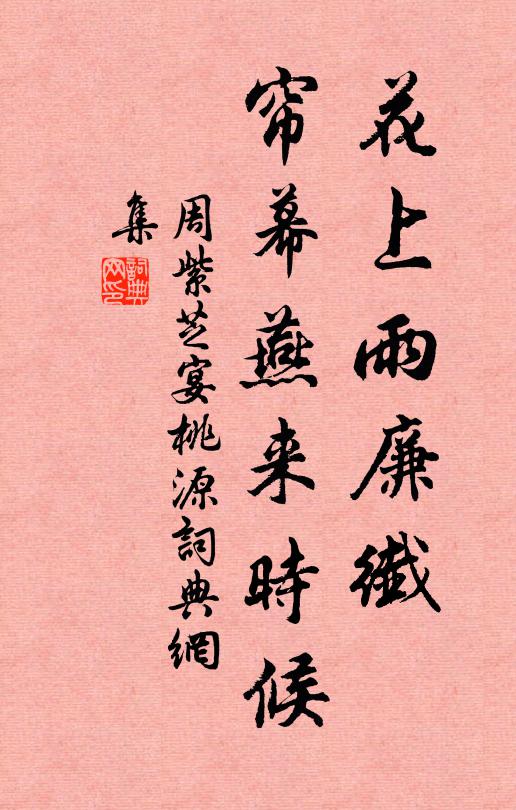 花上雨廉纖
帘幕燕来時候
周紫芝宴桃源詞典網
集
詞典網印